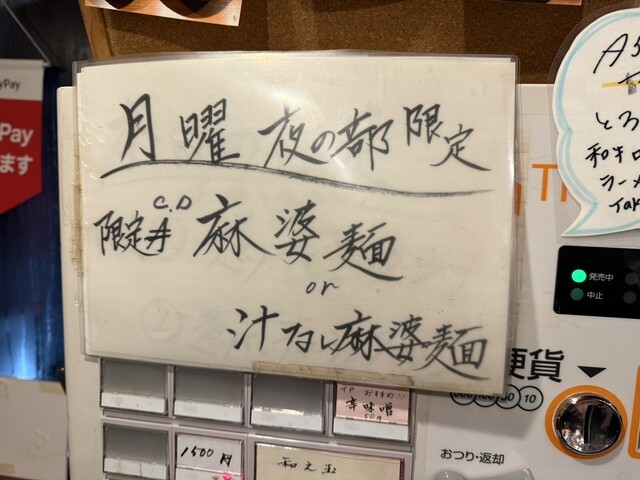 yPay
Pay
ます
月曜 夜の部 限定
C.D
限定 麻婆麺
or
汁なし麻婆麺
とろ
和牛
ラーメ
発売中
中止
硬貨
10
おつり・返却
おすすめ
辛味噌
1500円
和え玉